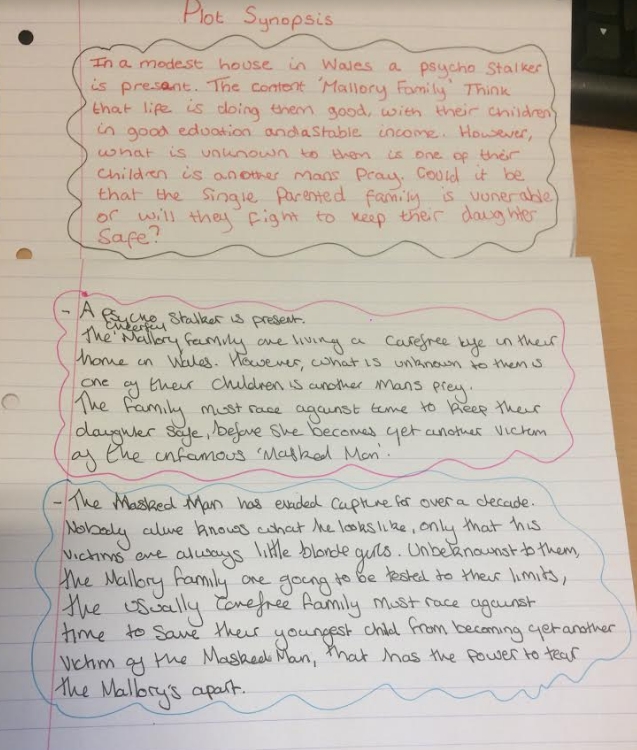 Plot Synopsis
In a modest house in Wales a psycho stalker
is present. The content 'Mallory Family' Think
that life is doing them good, with their children
in good eduation and a stable income. However,
what is unknown to them is one of their
children is another mans Pray. Could it be
that the Single Parented family is vunerable
or will they fight to keep their daughter
Safe?
- A psycho stalker is present.
The Mallory family are living a carefree life in their
home in Wales. However, what is unknown to them is
one of their children is another mans prey.
The family must race against time to keep their
daughter safe, before she becomes yet another victim
of the infamous 'Masked Man'.
- The Masked Man has evaded capture for over a decade.
Nobody alive knows what he looks like, only that his
victims are always little blonde girls. Unbeknownst to them,
the Mallory family are going to be tested to their limits,
the usually carefree family must race against
time to save their youngest child from becoming yet another
victim of the Masked Man, that has the power to tear
the Mallory's apart.